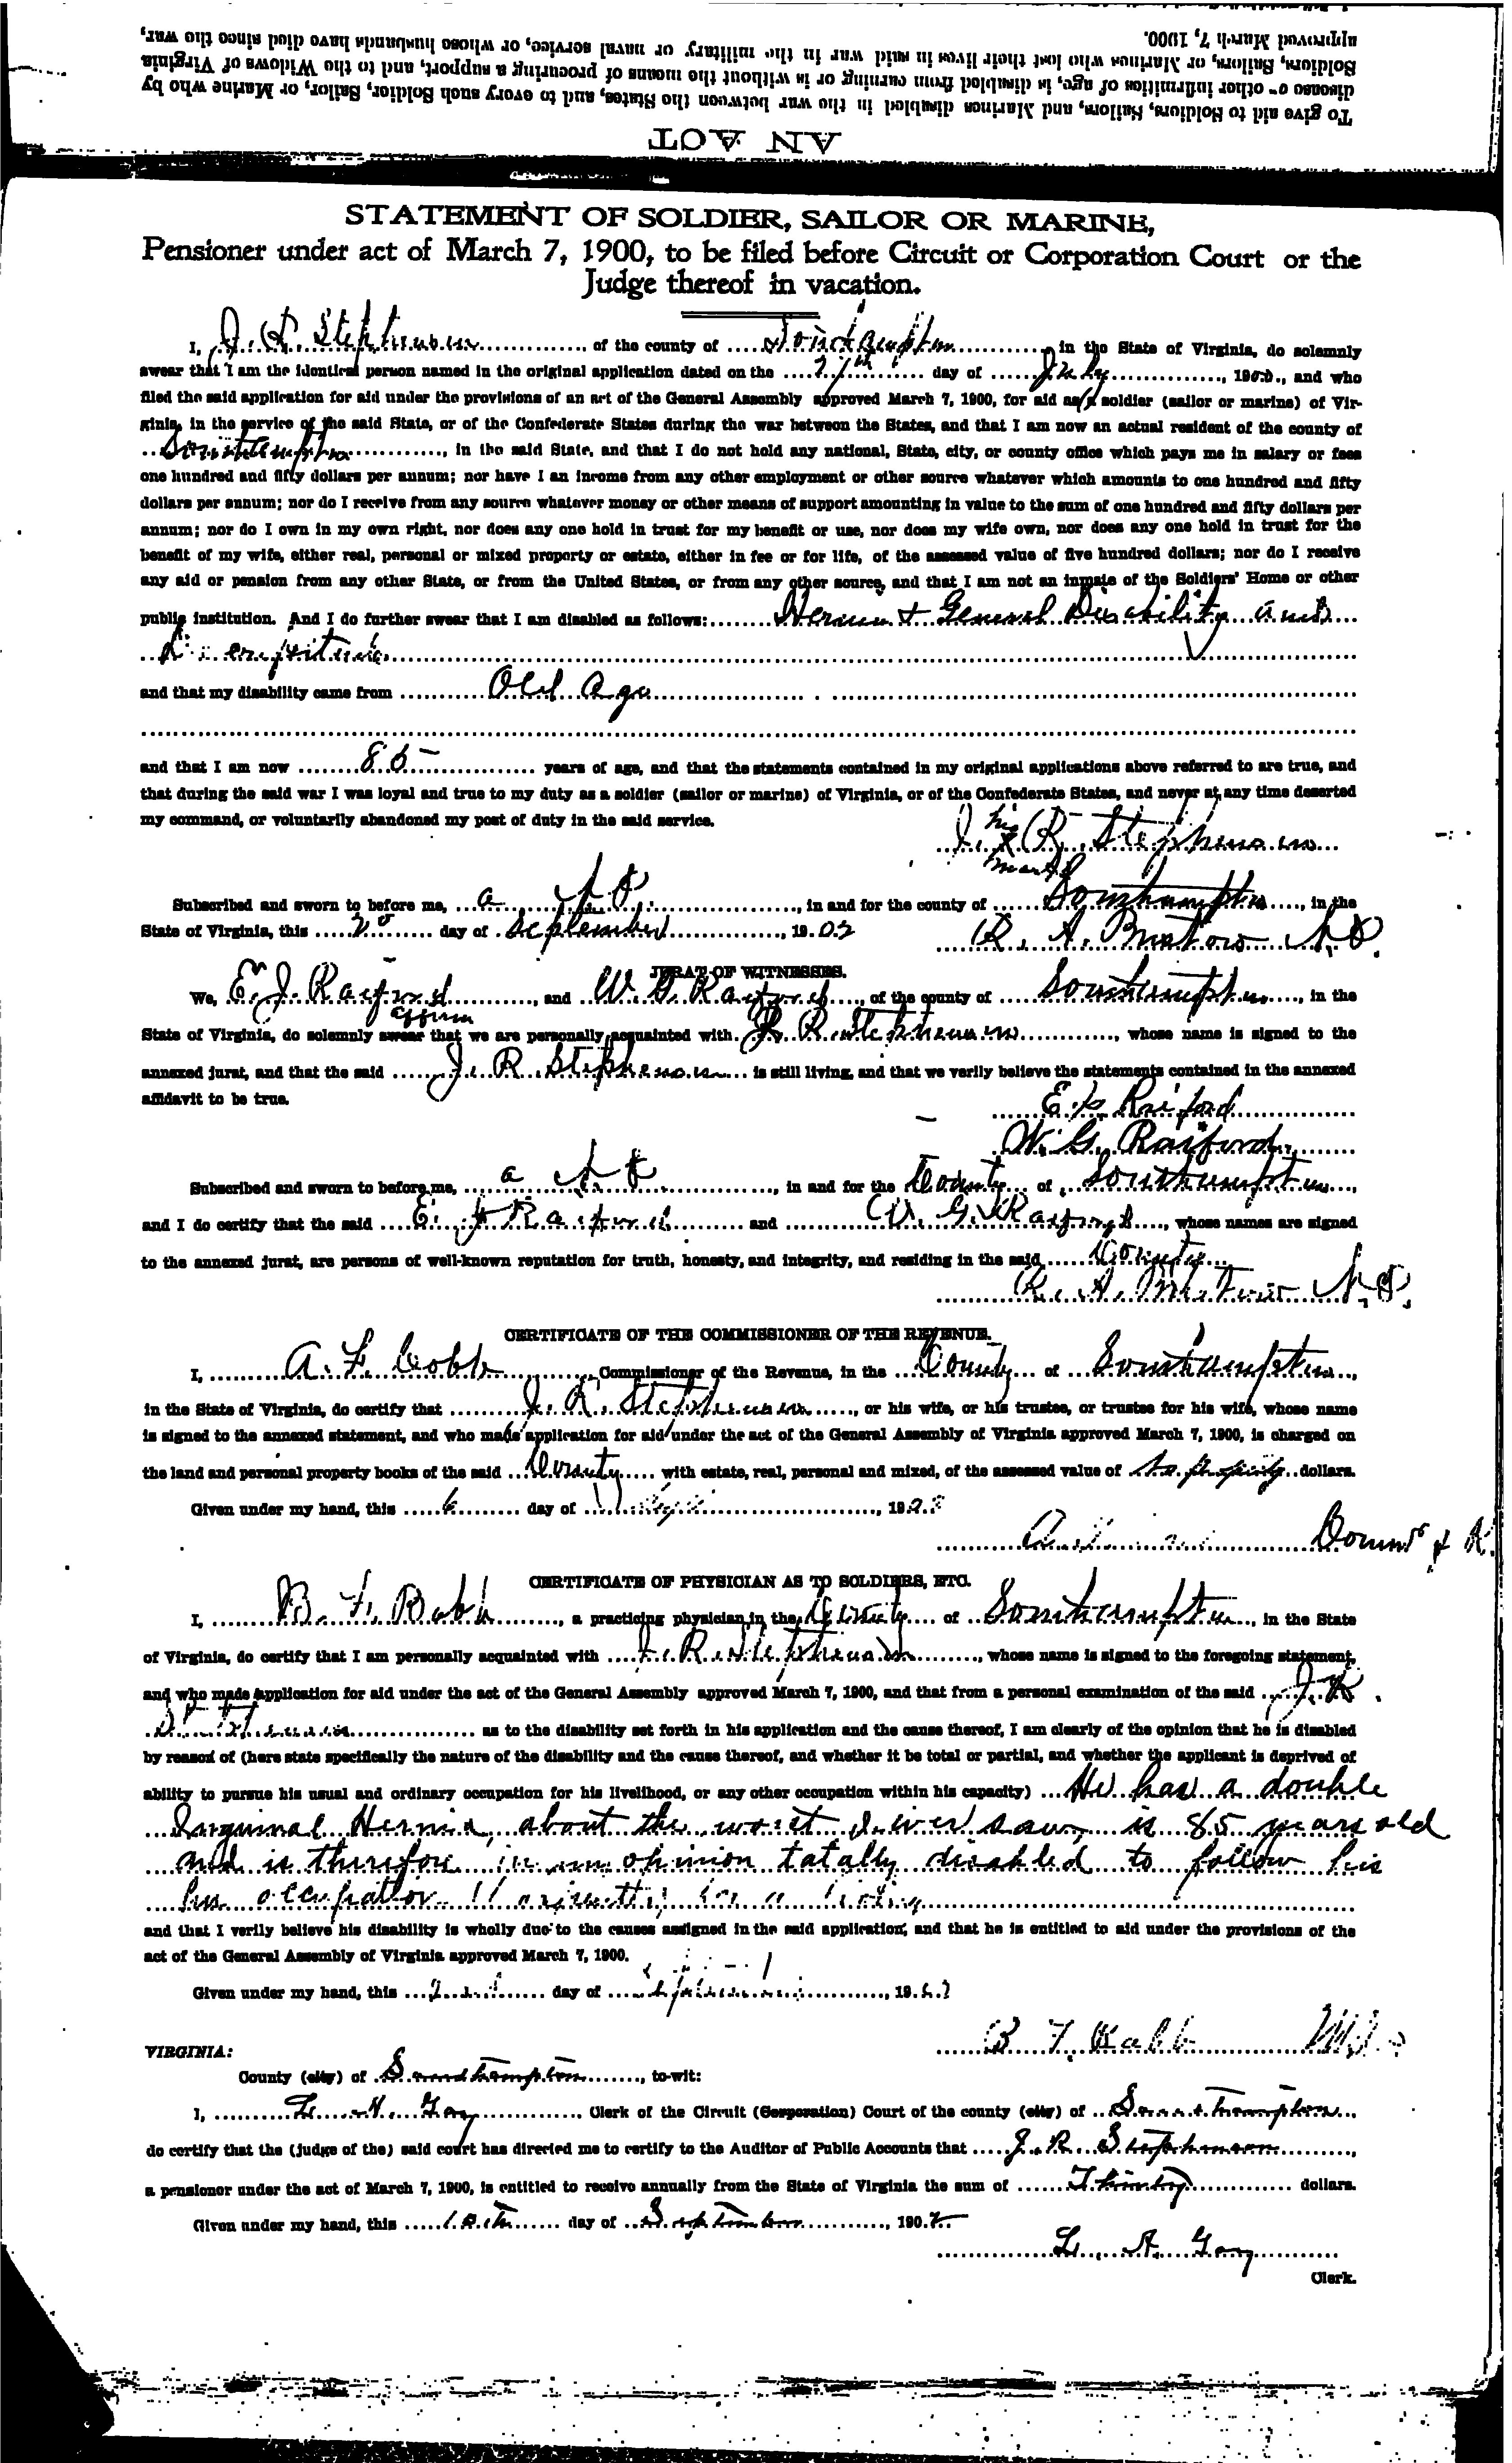 AN ACT
To give aid to Soldiers, Sailors, and Marines disabled in the war between the States, and to every such Soldier, Sailor, or Marine who by
disease or other infirmities of age, is disabled from earning or is without the means of procuring a support, and to the Widows of Virginia
Soldiers, Sailors, or Marines who lost their lives in said war in the military or naval service, or whose husbands have died since the war,
approved March 7, 1900.
STATEMENT OF SOLDIER, SAILOR OR MARINE,
Pensioner under act of March 7, 1900, to be filed before Circuit or Corporation Court or the
Judge thereof in vacation.
I, J. R. Stephenson, of the county of Southampton, in the State of Virginia, do solemnly
swear that I am the identical person named in the original application dated on the day of July, 1900, and who
filed the said application for aid under the provisions of an act of the General Assembly approved March 7, 1900, for aid as a soldier (sailor or marine) of Vir-
ginia in the service of the said State, or of the Confederate States during the war between the States, and that I am now an actual resident of the county of
Southampton, in the said State, and that I do not hold any national, State, city, or county office which pays me in salary or fees
one hundred and fifty dollars per annum; nor have I an income from any other employment or other source whatever which amounts to one hundred and fifty
dollars per annum; nor do I receive from any source whatever money or other means of support amounting in value to the sum of one hundred and fifty dollars per
annum; nor do I own in my own right, nor does any one hold in trust for my benefit or use, nor does my wife own, nor does any one hold in trust for the
benefit of my wife, either real, personal or mixed property or estate, either in fee or for life, of the assessed value of five hundred dollars; nor do I receive
any aid or pension from any other State, or from the United States, or from any other source, and that I am not an inmate of the Soldiers' Home or other
public institution. And I do further swear that I am disabled as follows: Hernia & General Disability and
and that my disability came from Old Age
and that I am now 85 years of age, and that the statements contained in my original applications above referred to are true, and
that during the said war I was loyal and true to my duty as a soldier (sailor or marine) of Virginia, or of the Confederate States, and never at any time deserted
my command, or voluntarily abandoned my post of duty in the said service.
his
J. x R. Stephenson
mark
Subscribed and sworn to before me, a, in and for the county of Southampton, in the
State of Virginia, this 2 day of September, 1902
R. A.
JURAT OF WITNESSES.
We, E. J. Raiford, and W. G. Raiford, of the county of Southampton, in the
affirm
State of Virginia, do solemnly swear that we are personally acquainted with J. R. Stephenson, whose name is signed to the
annexed jurat, and that the said J. R. Stephenson is still living, and that we verily believe the statements contained in the annexed
affidavit to be true.
E. J. Raiford
W. G. Raiford
Subscribed and sworn to before me, a, in and for the County of Southampton,
and I do certify that the said E. J. Raiford and W. G. Raiford, whose names are signed
to the annexed jurat, are persons of well-known reputation for truth, honesty, and integrity, and residing in the said County
R. A.
CERTIFICATE OF THE COMMISSIONER OF THE REVENUE.
I, A. F. Cobb, Commissioner of the Revenue, in the County of Southampton,
in the State of Virginia, do certify that J. R. Stephenson, or his wife, or his trustee, or trustee for his wife, whose name
is signed to the annexed statement, and who made application for aid under the act of the General Assembly of Virginia approved March 7, 1900, is charged on
the land and personal property books of the said County with estate, real, personal and mixed, of the assessed value of no property dollars.
Given under my hand, this 6 day of, 190
CERTIFICATE OF PHYSICIAN AS TO SOLDIERS, ETC.
I, B. F. Babb, a practicing physician in the County of Southampton, in the State
of Virginia, do certify that I am personally acquainted with J. R. Stephenson, whose name is signed to the foregoing statement,
and who made application for aid under the act of the General Assembly approved March 7, 1900, and that from a personal examination of the said J. R.
Stephenson as to the disability set forth in his application and the cause thereof, I am clearly of the opinion that he is disabled
by reason of (here state specifically the nature of the disability and the cause thereof, and whether it be total or partial, and whether the applicant is deprived of
ability to pursue his usual and ordinary occupation for his livelihood, or any other occupation within his capacity) He has a double
Inguinal Hernia, about the worst I ever saw, is 85 years old
and is therefore in my opinion totally disabled to follow his
occupation
and that I verily believe his disability is wholly due to the causes assigned in the said application, and that he is entitled to aid under the provisions of the
act of the General Assembly of Virginia approved March 7, 1900.
Given under my hand, this day of, 190
B. F. Babb M.D.
VIRGINIA:
County (city) of Southampton, to-wit:
I, L. A. Gay, Clerk of the Circuit (Corporation) Court of the county (city) of Southampton,
do certify that the (judge of the) said court has directed me to certify to the Auditor of Public Accounts that J. R. Stephenson,
a pensioner under the act of March 7, 1900, is entitled to receive annually from the State of Virginia the sum of Thirty dollars.
Given under my hand, this day of September, 1902
L. A. Gay
Clerk.